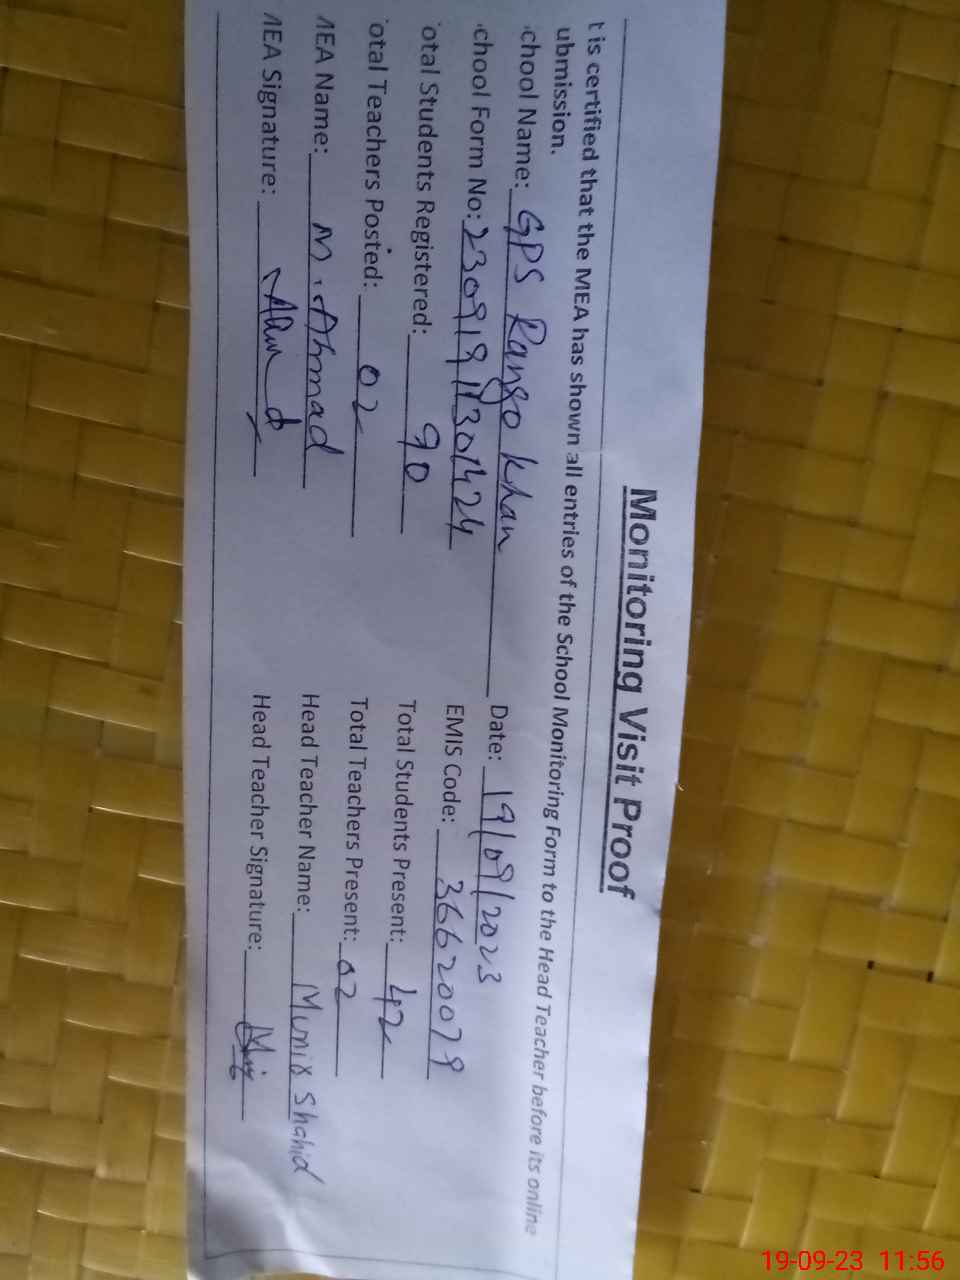 Monitoring Visit Proof
t is certified that the MEA has shown all entries of the School Monitoring Form to the Head Teacher before its online
ubmission.
chool Name: GPS Rango Khan Date: 19/09/2023
chool Form No: 23091911301424 EMIS Code: 36620079
otal Students Registered: 90 Total Students Present: 42
otal Teachers Posted: 02 Total Teachers Present: 02
MEA Name: M. Ahmad Head Teacher Name: Munir Shahid
MEA Signature: Head Teacher Signature:
19-09-23 11:56